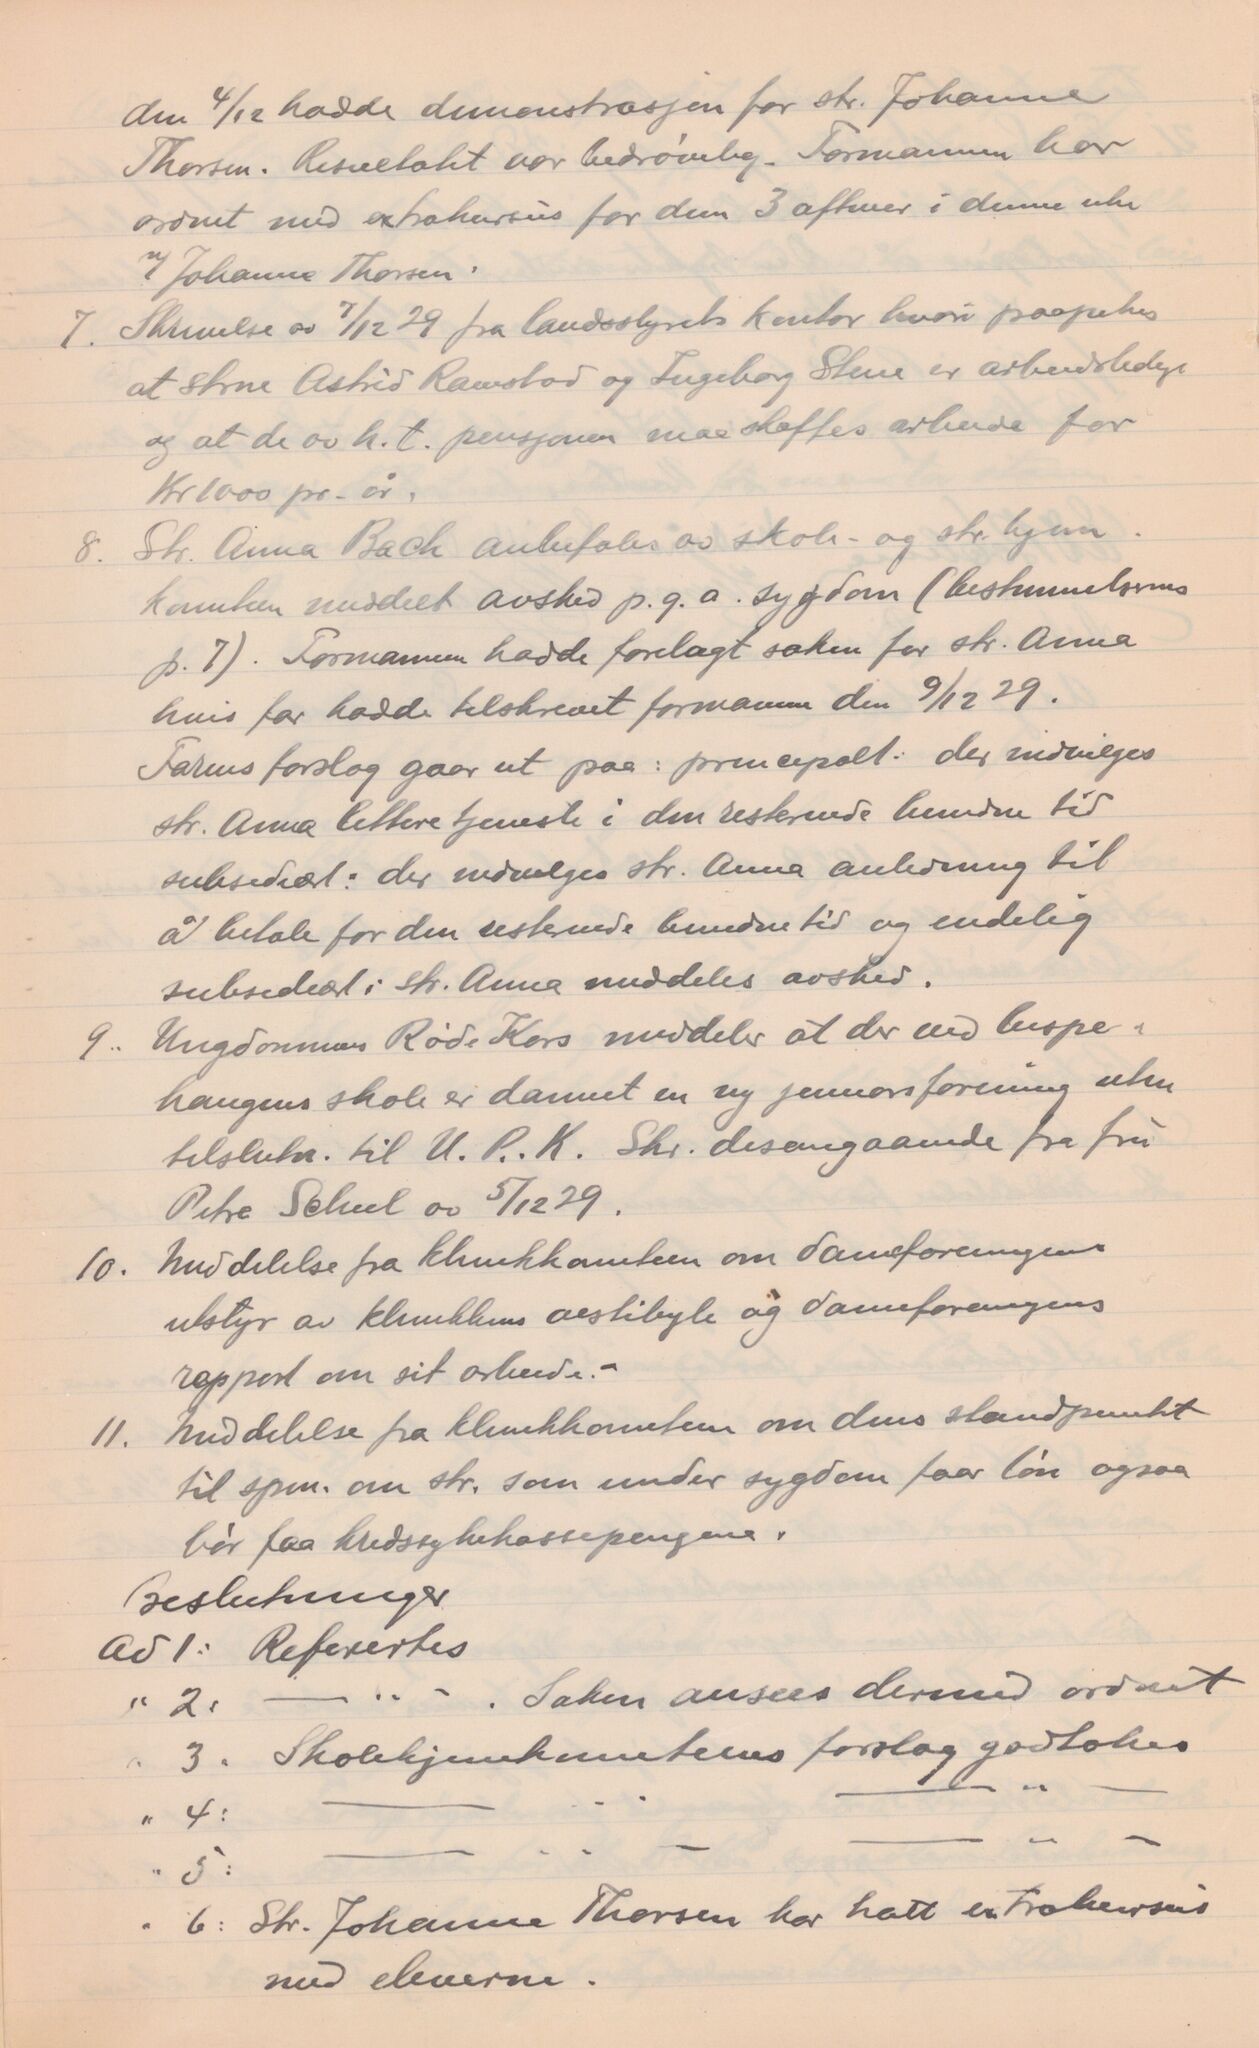 den 4/12 hadde demonstrasjon for str. Johanne
Thorsen. Resultatet var bedrøvelig. Formannen har
ordnet med extrakursus for dem 3 aftener i denne uke
v/ Johanne Thorsen.
7. Skrivelse av 7/12 29 fra landsstyrets kontor hvori paapekes
at strne Astrid Ramstad og Ingeborg Stene er arbeidsledige
og at de av h.t. pensjonen maa skaffes arbeide for
Kr 1000 pr. år.
8. Str. Anna Bach anbefales av skole- og str. hjem
komiteen meddelt avsked p.g.a. sygdom (bestemmelsernes
p. 7). Formannen hadde forelagt saken for str. Anna
hvis far hadde tilskrevet formannen den 9/12 29.
Farens forslag gaar ut paa: principalt: der indvilges
str. Anna lettere tjeneste i den resterende bundne tid
subsediært: der indvilges str. Anna anledning til
å betale for den resterende bundne tid og endelig
subsediært: str. Anna meddeles avsked.
9. Ungdommens Røde Kors meddeler at der ved bispe-
haugens skole er dannet en ny juniorsforening uten
tilslutn. til U.R.K. Skr. desangaaende fra fru
Petra Scheel av 5/12 29.
10. Meddelelse fra klinikkomiteen om dameforeningens
utstyr av klinikkens vestibyle og dameforeningens
rapport om sit arbeide.-
11. Meddelelse fra klinikkomiteen om dens standpunkt
til spm. om str. som under sygdom faar løn ogsaa
bør faa kredssykekassepengene.
Beslutninger
Ad 1: Refereres
" 2: — " - . Saken ansees dermed ordnet
" 3. Skolehjemkomiteens forslag godtokes
" 4: — " — " —
" 5: — " - — " -
" 6: Str. Johanne Thorsen har hatt extrakursus
med eleverne.